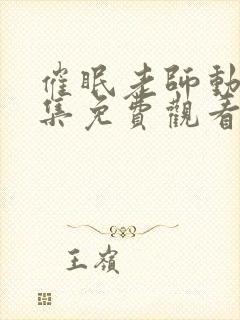 催眠老師動
集免費觀看
王嶺